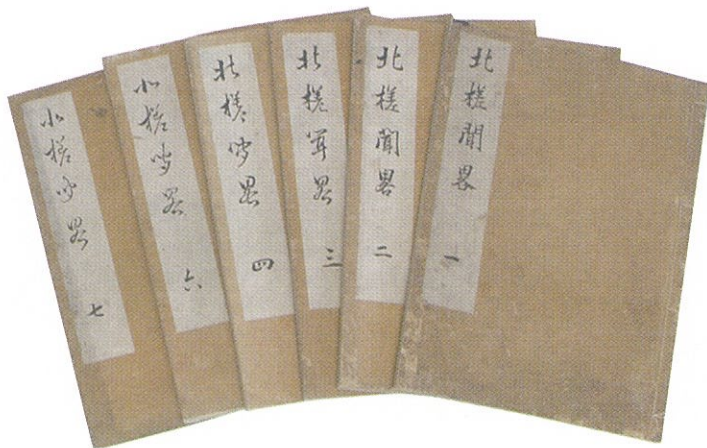 北槎聞畧 一
北槎聞畧 二
北槎聞畧 三
北槎聞畧 四
北槎聞畧 六
北槎聞畧 七